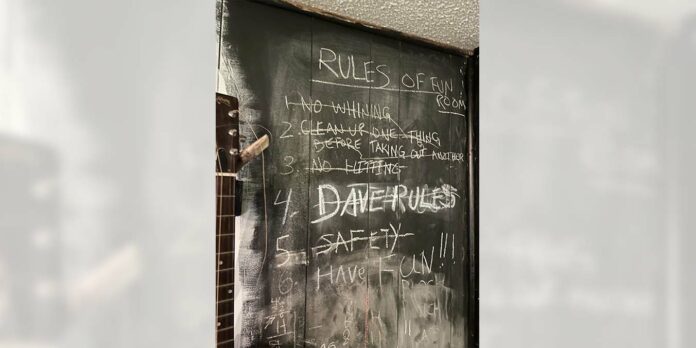 RULES OF FUN
ROOM
1. NO WHINING
2. CLEAN UP ONE THING
BEFORE TAKING OUT ANOTHER
3. NO HITTING
4. DAVE RULES
5. SAFETY
6. HAVE FUN!!!